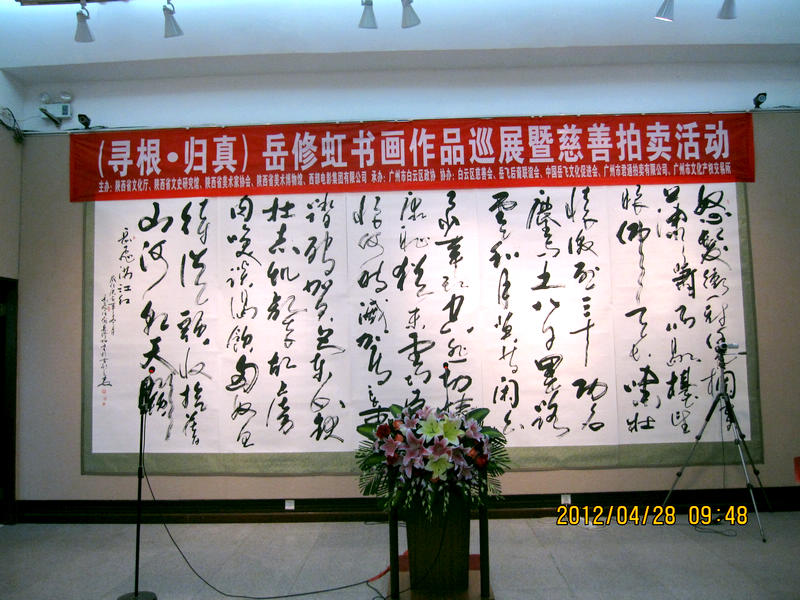 （寻根·归真）岳修虹书画作品巡展暨慈善拍卖活动
主办：陕西省文化厅、陕西省文史研究馆、陕西省美术家协会、陕西省美术博物馆、西部电影集团有限公司 承办：广州市白云区政协 协办：白云区慈善会、岳飞后裔联谊会、中国岳飞文化促进会、广州市君道拍卖有限公司、广州市文化产权交易所
怒髮衝冠憑欄處
瀟瀟雨歇抬望
眼仰天長嘯壯
懷激烈三十功名
塵與土八千里路
雲和月莫等閑白
了少年頭空悲切靖
康恥猶未雪臣子
恨何時滅駕長車
踏破賀蘭山缺
壯志飢餐胡虜
肉笑談渴飲匈奴血
待從頭收拾舊
山河朝天闕
岳飛满江红
2012/04/28 09:48